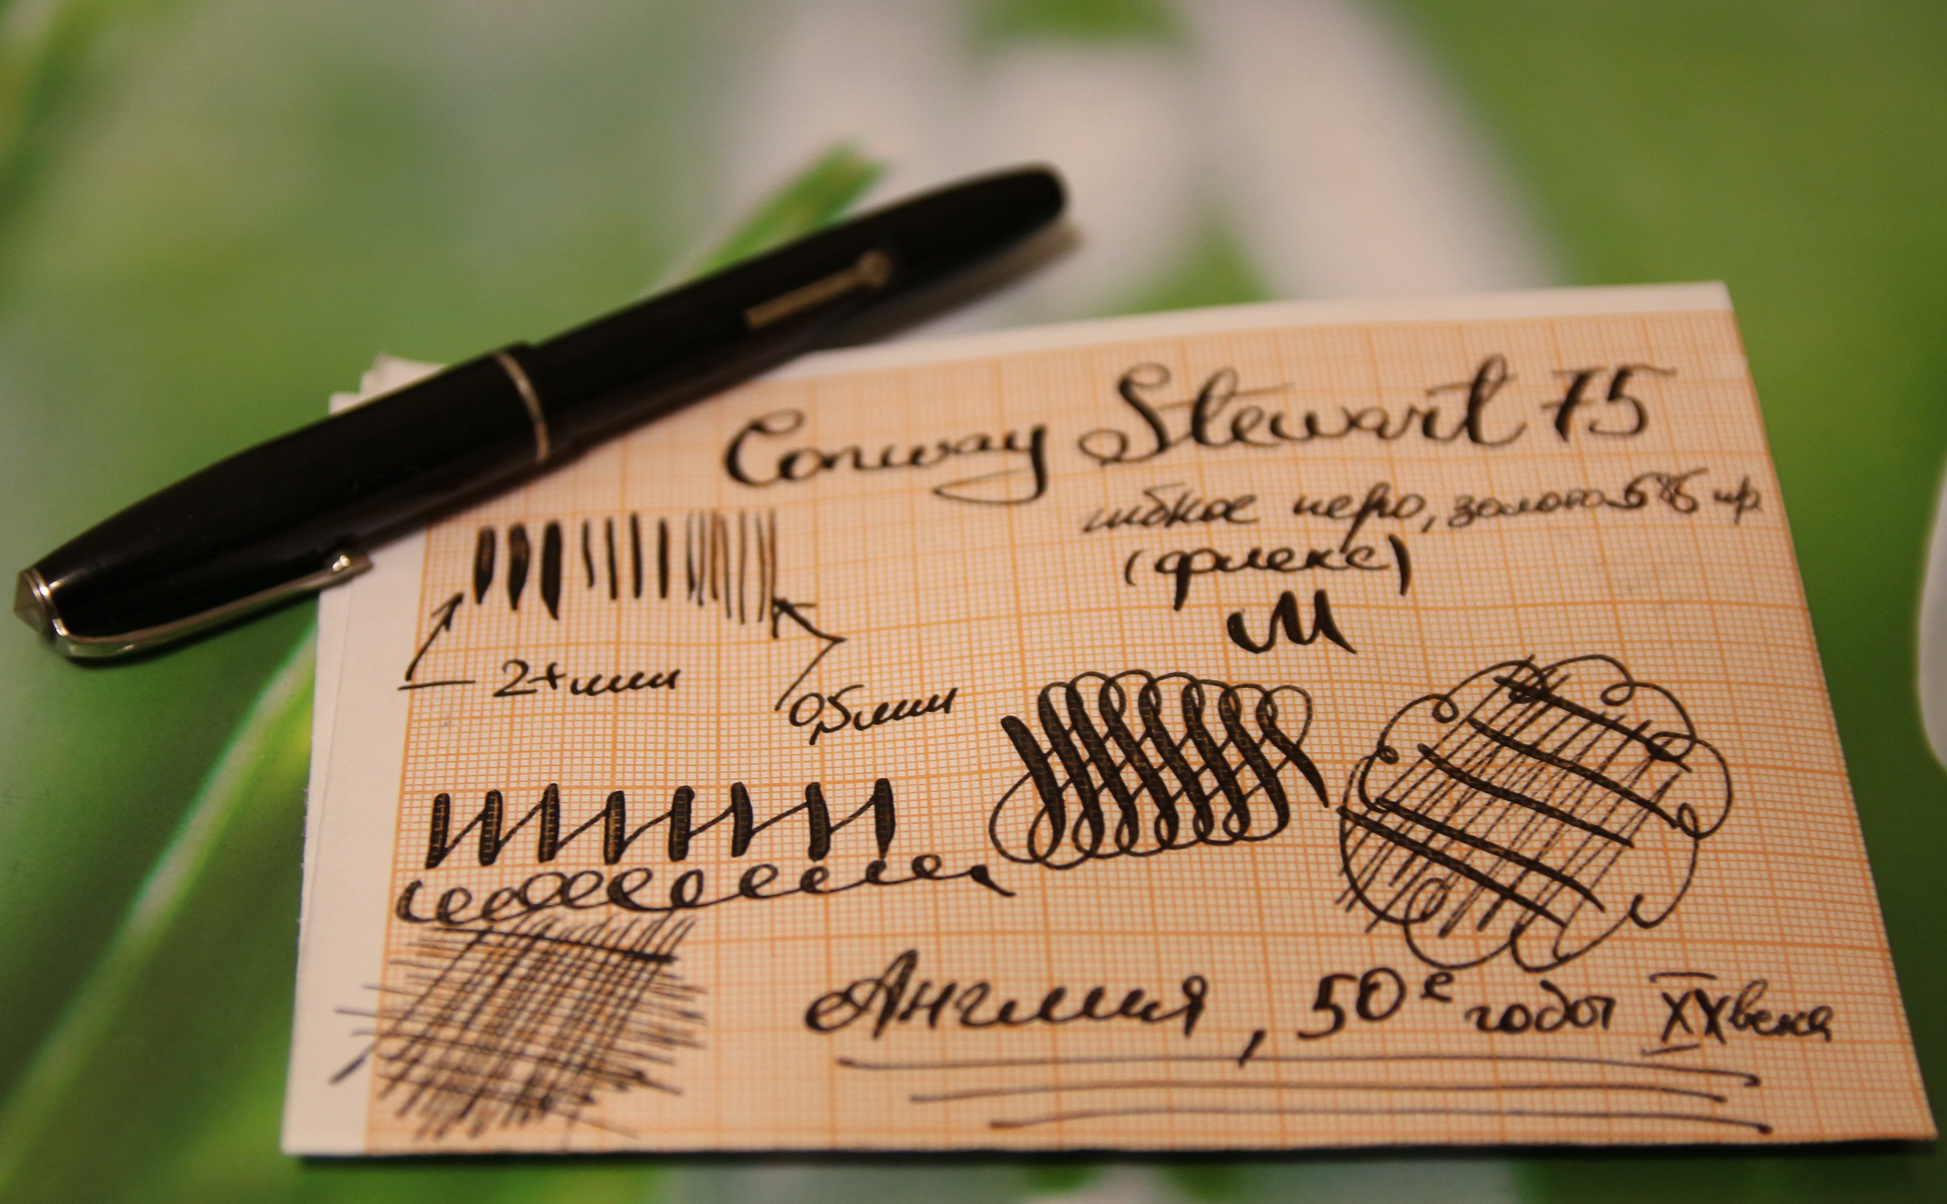 Conway Stewart 75
гибкое перо, золото 585 пр.
(флекс)
М
2+мм
0,5мм
Англия, 50е годы XX века